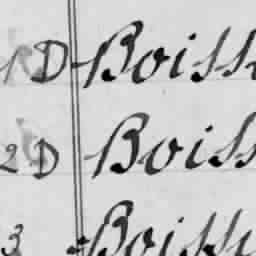 1 D Boiss
2 D Boiss
3 Boiss